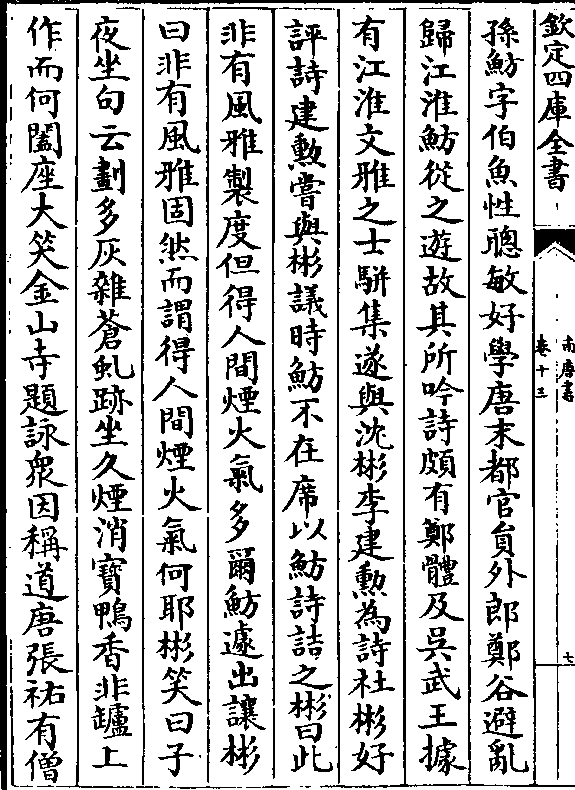 欽定四庫全書
南唐書
卷十三
七
孫魴字伯魚性聰敏好學唐末都官貟外郎鄭谷避亂
歸江淮魴從之遊故其所吟詩頗有鄭體及吳武王據
有江淮文雅之士駢集遂與沈彬李建勲為詩社彬好
評詩建勲嘗與彬議時魴不在席以魴詩詰之彬曰此
非有風雅製度但得人間煙火氣多爾魴遽出讓彬
曰非有風雅固然而謂得人間煙火氣何耶彬笑曰子
夜坐句云劃多灰雜蒼虬跡坐久煙消寳鴨香非鑪上
作而何闔座大笑金山寺題詠衆因稱道唐張祐有僧